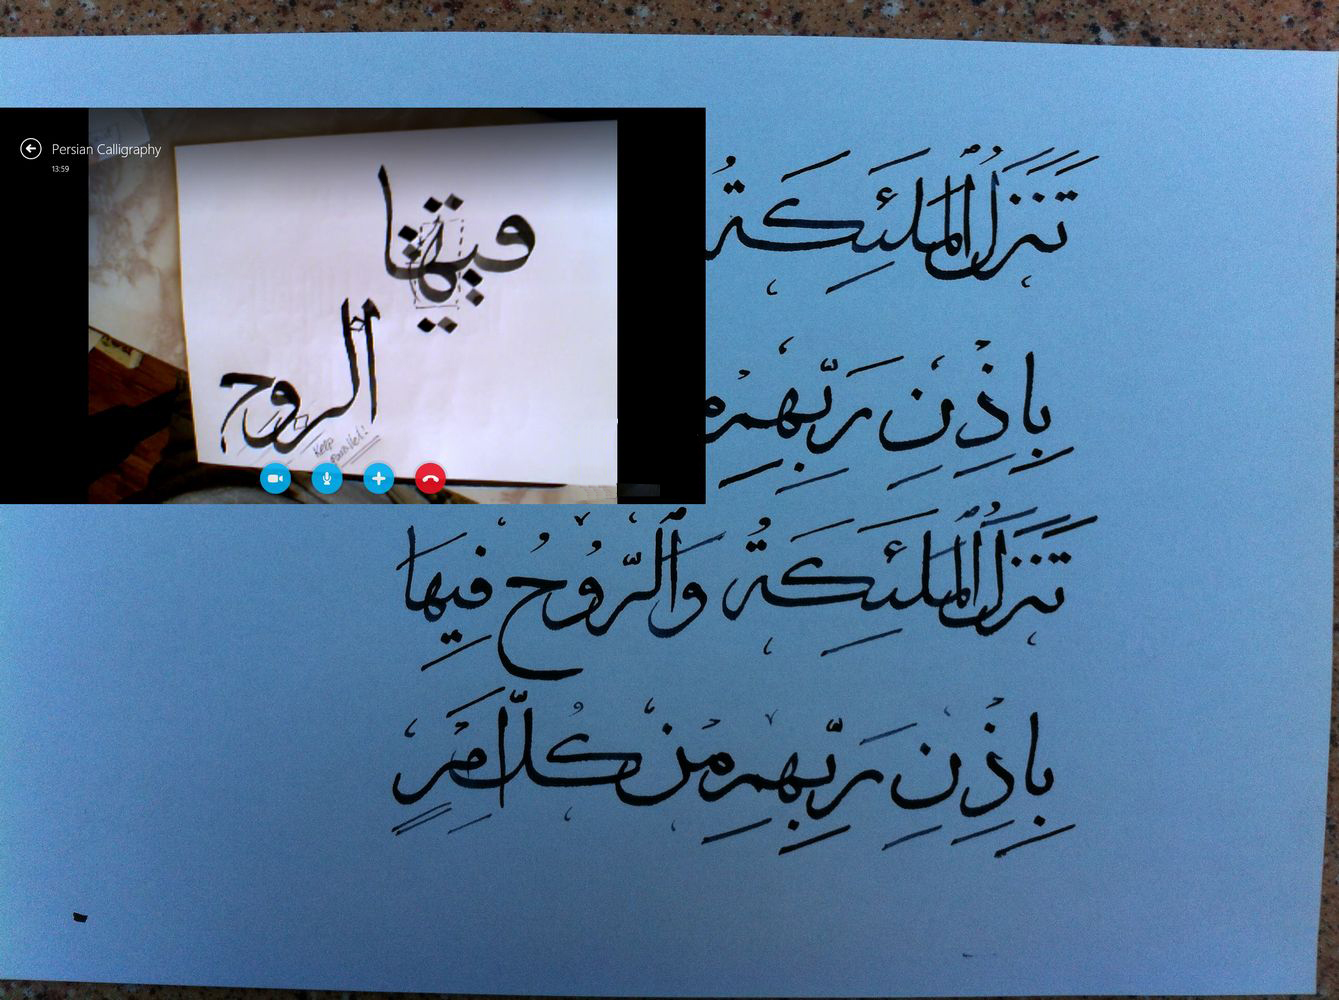 Persian Calligraphy
13:59
فيها
الروح
Keep
تَنَزَّلُ ٱلْمَلَٰٓئِكَةُ
بِإِذْنِ رَبِّهِم
تَنَزَّلُ ٱلْمَلَٰٓئِكَةُ وَٱلرُّوحُ فِيهَا
بِإِذْنِ رَبِّهِم مِّن كُلِّ أَمْرٍ